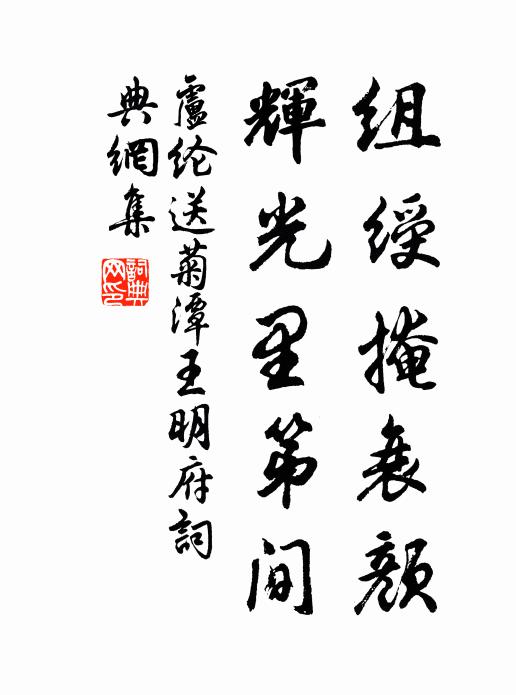 组绶掩衰颜
輝光里第间
盧纶送菊潭王明府詞
典網集
詞典网印